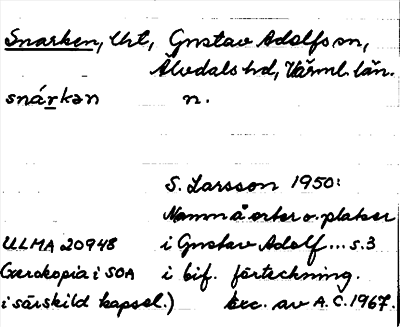 Snarken, Urt, Gustav Adolfs sn,
Älvdals hd, Värml. län.
snárkən n.
S. Larsson 1950:
Namn å orter o. platser
ULMA 20948 i Gustav Adolf... s. 3
(Xerokopia i SOA i bif. förteckning.
i särskild kapsel.) Exc. av A.C. 1967.